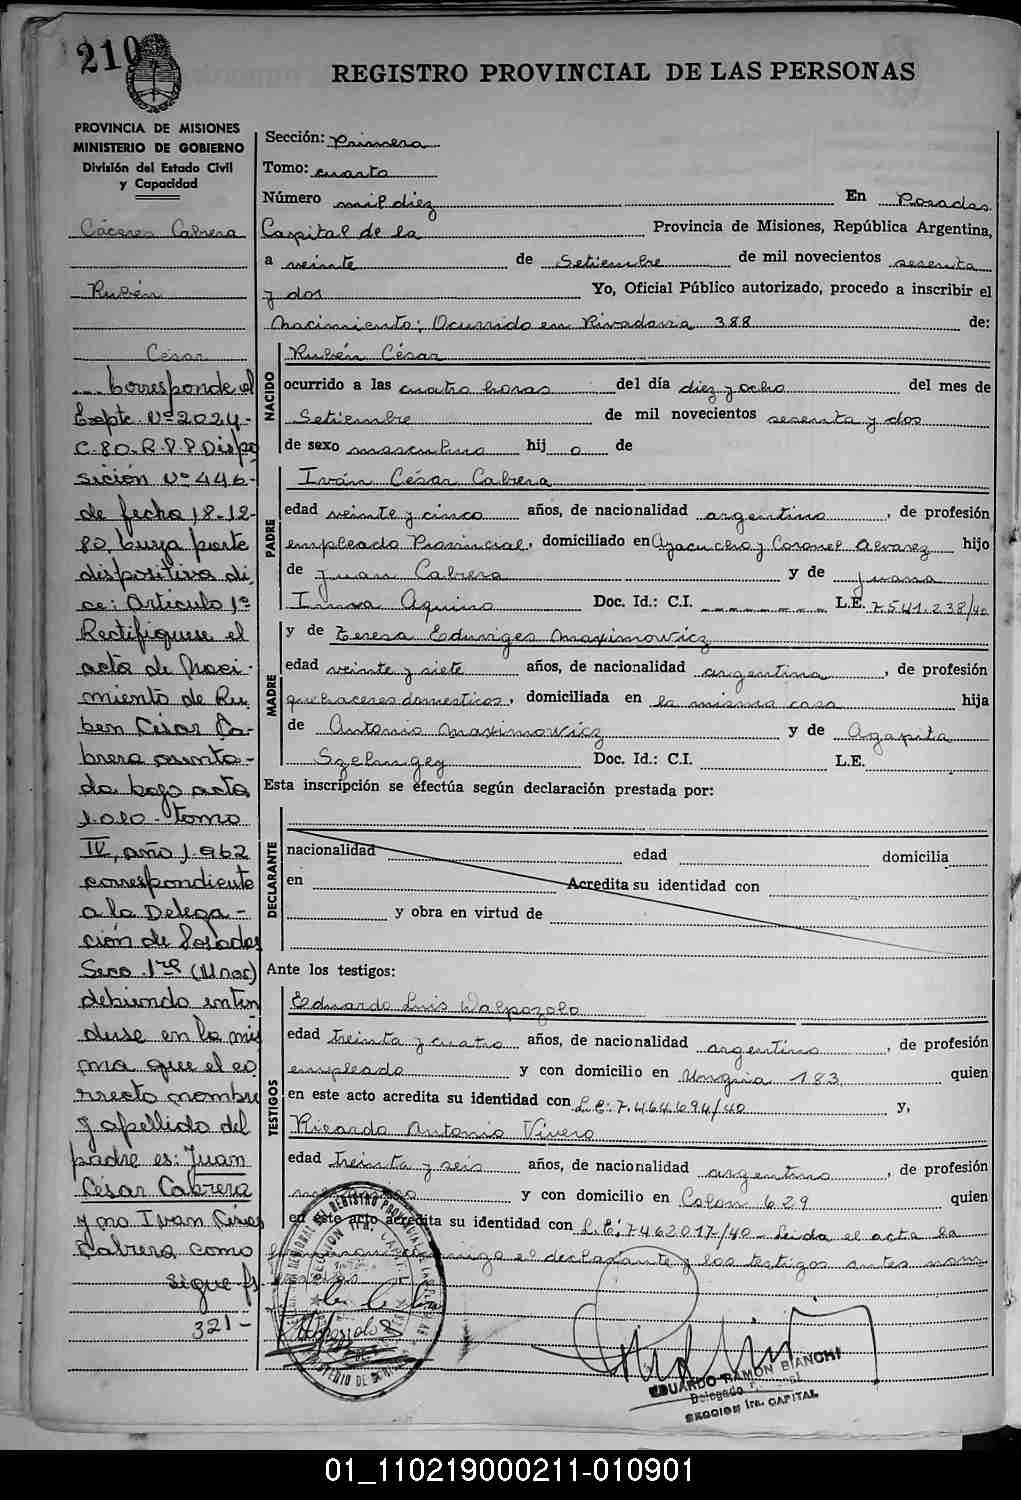 210
REGISTRO PROVINCIAL DE LAS PERSONAS
PROVINCIA DE MISIONES
MINISTERIO DE GOBIERNO
División del Estado Civil
y Capacidad
Cabrera
Rubén
César
Corresponde al
Expte. Nº 2024-
C-80-R.P.P Dispo
sición Nº 446-
de fecha 18-12-
80, cuya parte
dispositiva di
ce: Artículo 1º
Rectifiquese el
acta de Naci-
miento de Ru
ben César Ca-
brera asenta-
da bajo acta
1.010 - tomo
IV, año 1.962
correspondiente
a la Delega-
ción de Posadas
Secc. 1ra (Unas)
debiendo enten
derse en la mis
ma que el co
rrecto nombre
y apellido del
padre es: Juan
César Cabrera
y no Ivan César
Cabrera como
sigue fs.
321-
Sección: Primera
Tomo: cuarto
Número mil diez En Posadas
Capital de la Provincia de Misiones, República Argentina,
a veinte de Setiembre de mil novecientos sesenta
y dos Yo, Oficial Público autorizado, procedo a inscribir el
Nacimiento: Ocurrido en Rivadavia 388 de:
NACIDO
Rubén César
ocurrido a las cuatro horas del día diez y ocho del mes de
Setiembre de mil novecientos sesenta y dos
de sexo masculino hij o de
PADRE
Iván César Cabrera
edad veinte y cinco años, de nacionalidad argentino, de profesión
empleado Provincial, domiciliado en Ayacucho y Coronel Alvarez hijo
de Juan Cabrera y de Juana
Aquino Doc. Id.: C.I. L.E. 7.541.238/40
MADRE
y de Teresa Eduviges Maximowicz
edad veinte y siete años, de nacionalidad argentina, de profesión
quehaceres domesticos, domiciliada en la misma casa hija
de Antonio Maximowicz y de Agapita
Szelingey Doc. Id.: C.I. L.E.
Esta inscripción se efectúa según declaración prestada por:
DECLARANTE
nacionalidad edad domicilia
en Acredita su identidad con
y obra en virtud de
Ante los testigos:
TESTIGOS
Eduardo Luis Dalpozolo
edad treinta y cuatro años, de nacionalidad argentino, de profesión
empleado y con domicilio en 183 quien
en este acto acredita su identidad con L.E: 7.464.694/40 y,
Ricardo Antonio Vivero
edad treinta y seis años, de nacionalidad argentino, de profesión
y con domicilio en Colon 629 quien
en este acto acredita su identidad con L.E: 7462017/40 - Leida el acta la
el declarante y los testigos antes nom
EDUARDO RAMON BIANCHI
Delegado
SECCION 1ra. CAPITAL
01_110219000211-010901